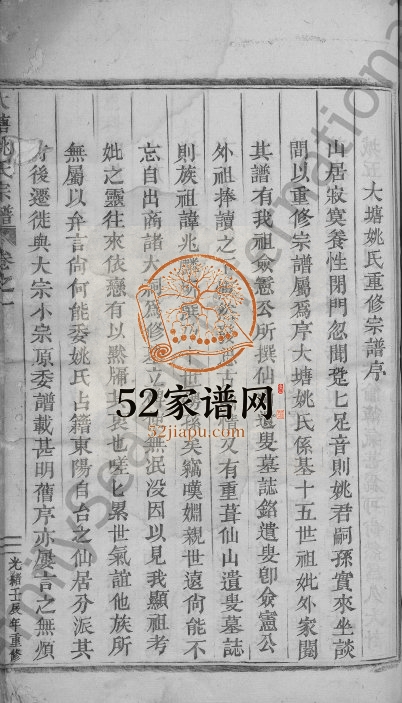 大塘姚氏重修宗譜序
山居寂寞養性閉門忽聞跫匕足音則姚君嗣孫實來坐談
間以重修宗譜屬爲序大塘姚氏係基十五世祖妣外家閱
其譜有我祖僉憲公所撰仙
遺叟墓誌銘遺叟卽僉憲公
外祖捧讀之下
又有重葺仙山遺叟墓誌
則族祖諱兆
撰
世
孫矣竊嘆婣親世遠尙能不
忘自出商諸大
爲修
立
無泯没因以見我顯祖考
妣之靈往來依戀有以默牖其衷也嗟匕累世氣誼他族所
無屬以弁言尙何能委姚氏占籍東陽自台之仙居分派其
方後遷徙與大宗小宗原委譜載甚明舊序亦屢言之無煩
塘姚氏宗譜
卷之一
光緒壬辰年重修
52家谱网
52jiapu.com